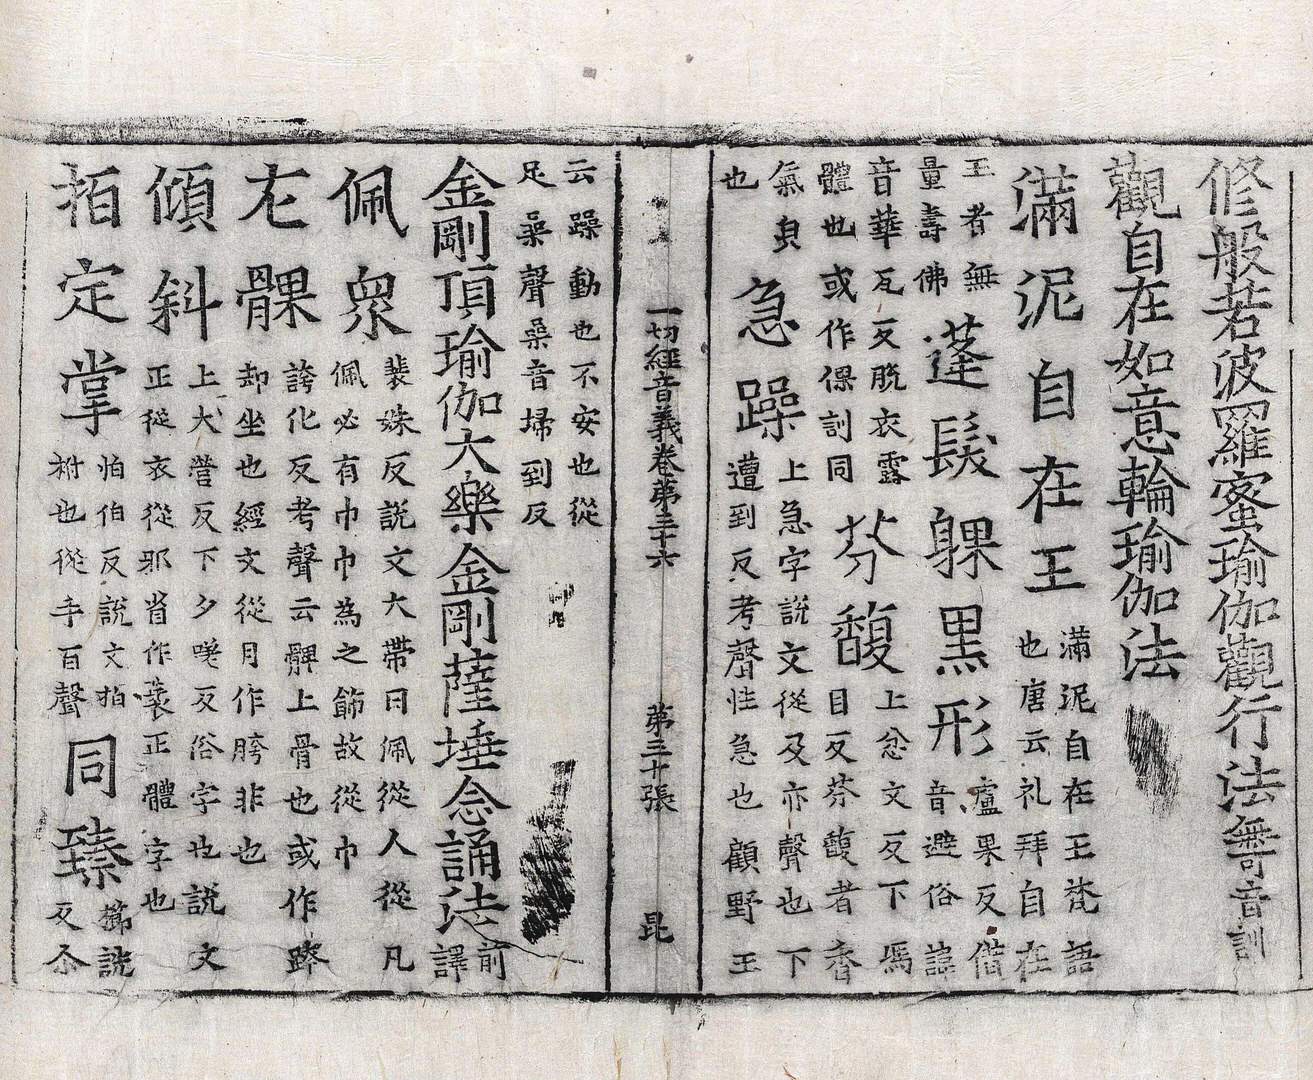 修般若波羅蜜瑜伽觀行法無音訓
觀自在如意輪瑜伽法
滿泥自在王 滿泥自在王梵語
也唐云礼拜自在
王者無
量壽佛 蓬髮躶黑形 盧果反借
音避俗諱
音華瓦反脫衣露
體也或作倮訓同 芬馥 上忿文反下馮
目反芬馥者香
氣皃
也 急躁 上急字說文從及亦聲也下
遭到反考聲性急也顧野王
一切經音義卷第三十六 第三十張 昆
云躁動也不安也從
足喿聲喿音埽到反
金剛頂瑜伽大樂金剛薩埵念誦法 前
譯
佩眾 裴妹反說文大帶曰佩從人從凡
佩必有巾巾為之飾故從巾
左髁 誇化反考聲云髀上骨也或作跨
却坐也經文從月作胯非也
傾斜 上大營反下夕嗟反俗字也說文
正從衣從邪省作衺正體字也
拍定掌 怕伯反說文拍
拊也從手百聲 同臻 櫛詵
反尒